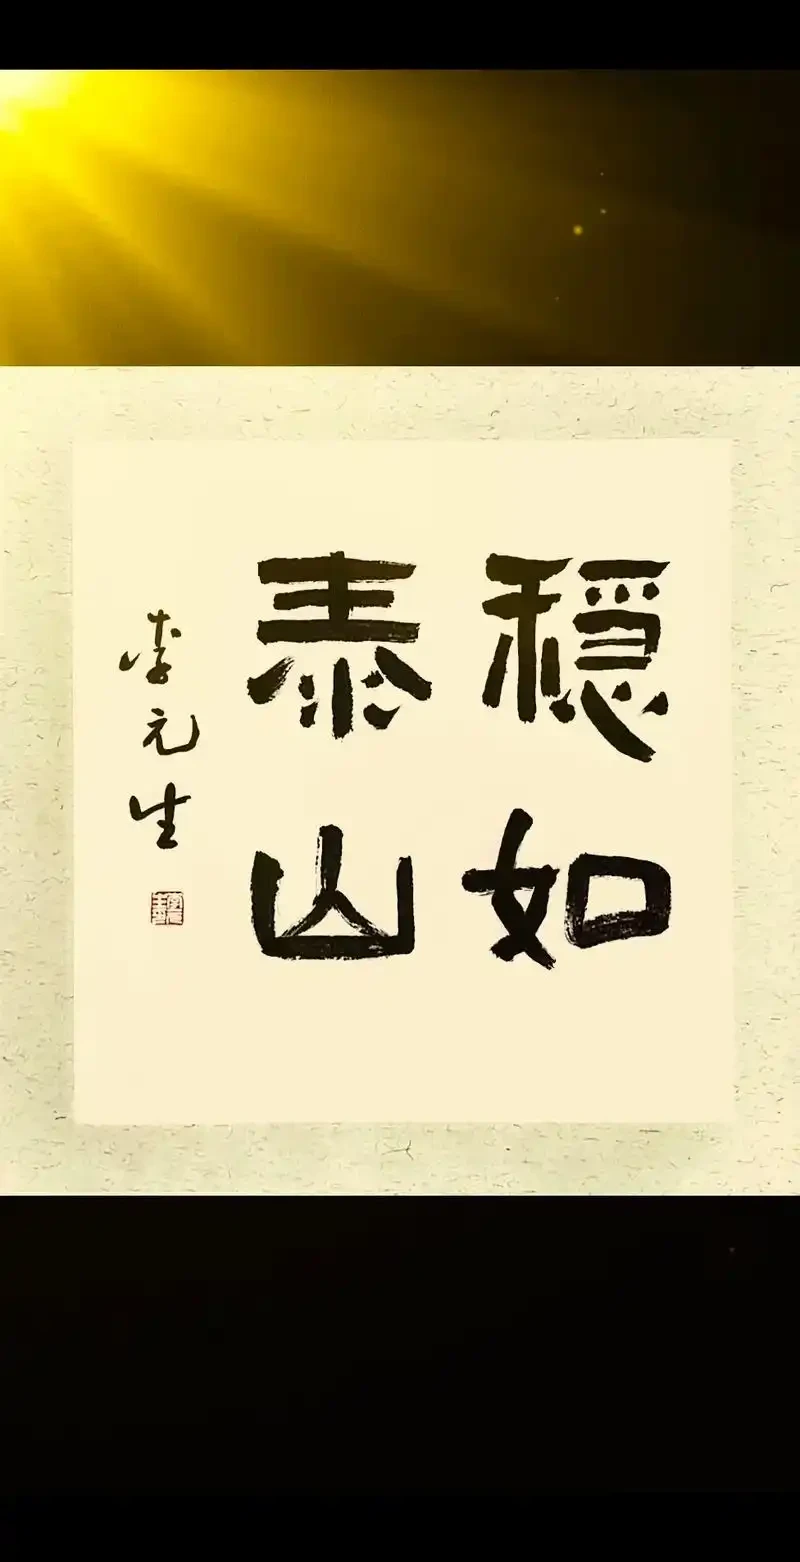 穩如
泰山
李元生